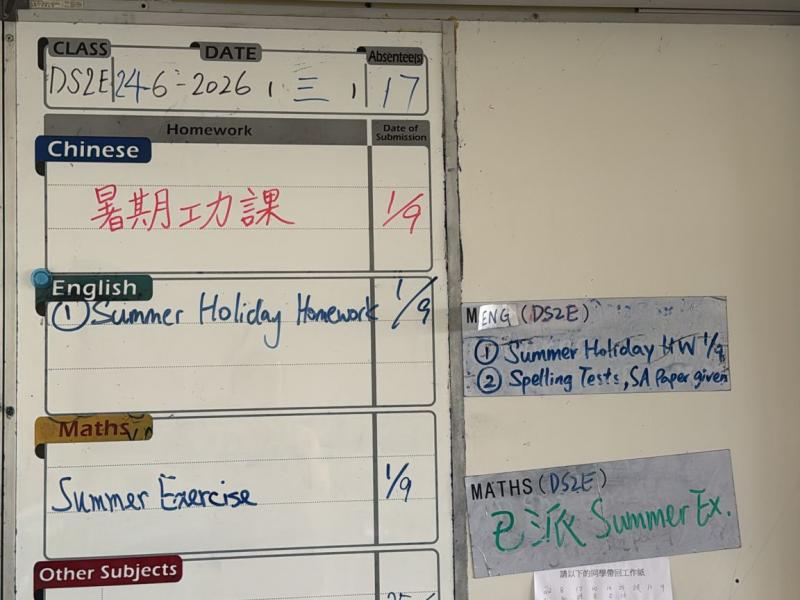 CLASS DATE Absentee(s)
DS2E 24-6-2026, 三, 17
Homework Date of Submission
Chinese
暑期工力課 1/9
English
① Summer Holiday Homework 1/9
Maths
Summer Exercise 1/9
Other Subjects
ENG (DS2E)
① Summer Holiday HW 1/9
② Spelling Tests, SA Paper given
MATHS (DS2E)
已派 Summer Ex.
請以下的同學帶回工作紙